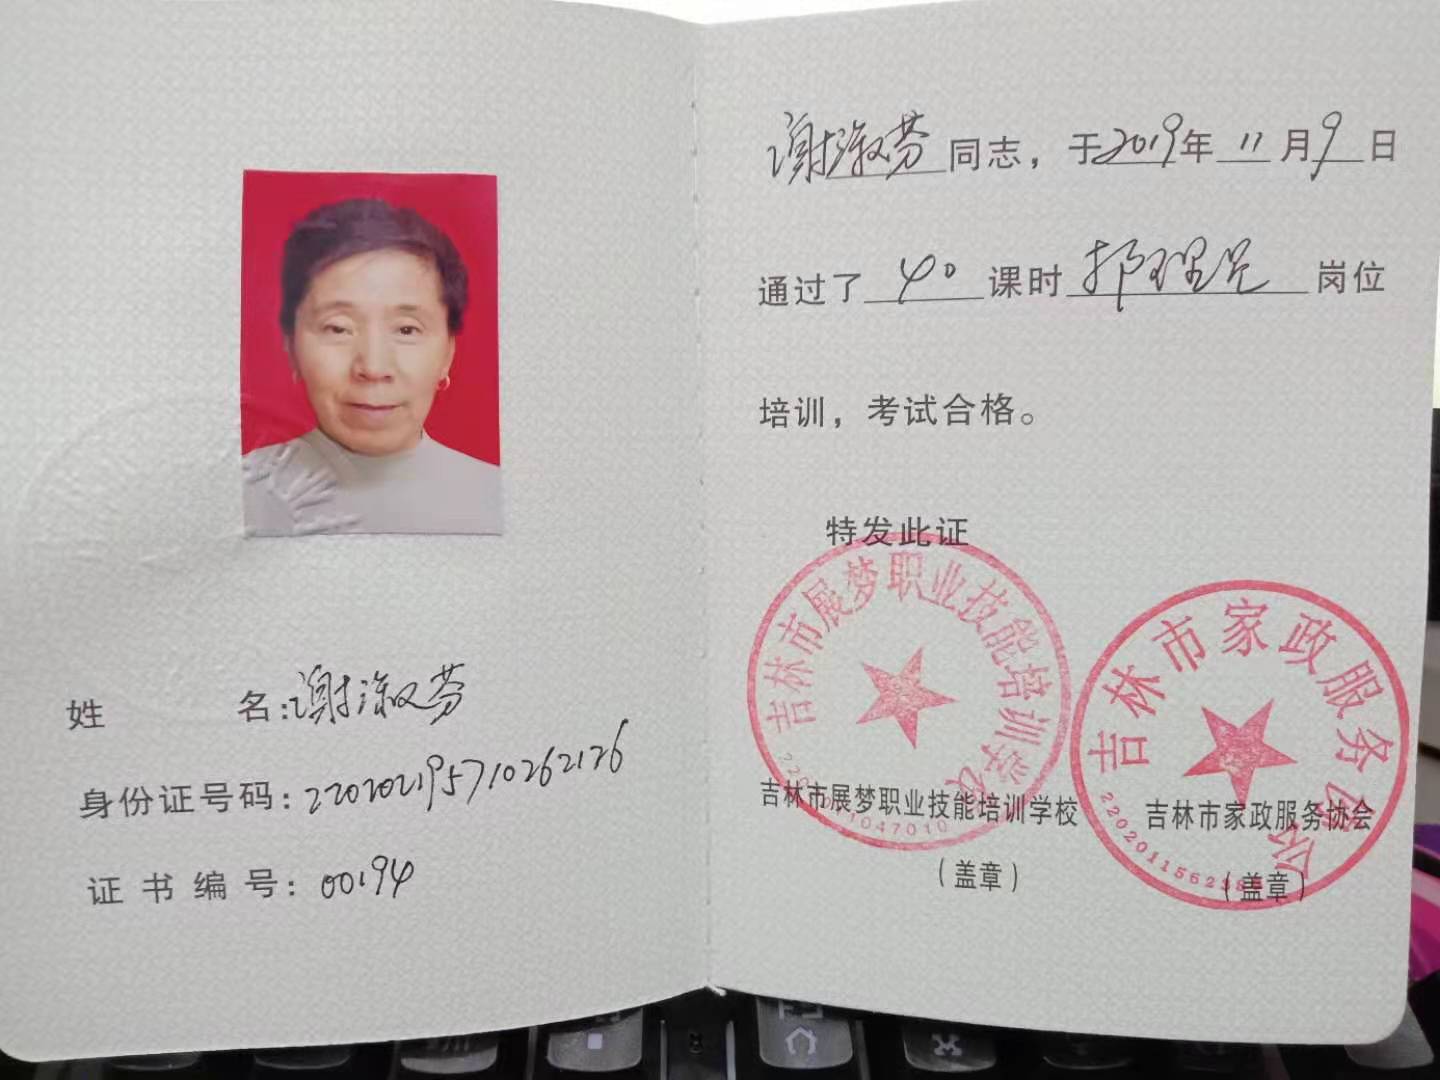 姓 名：谢淑芬
身份证号码：220202195710262126
证书编号：00194
谢淑芬同志，于2019年11月9日
通过了40课时护理员岗位
培训，考试合格。
特发此证
吉林市展梦职业技能培训学校
吉林市家政服务协会
吉林市展梦职业技能培训学校
（盖章）
吉林市家政服务协会
（盖章）